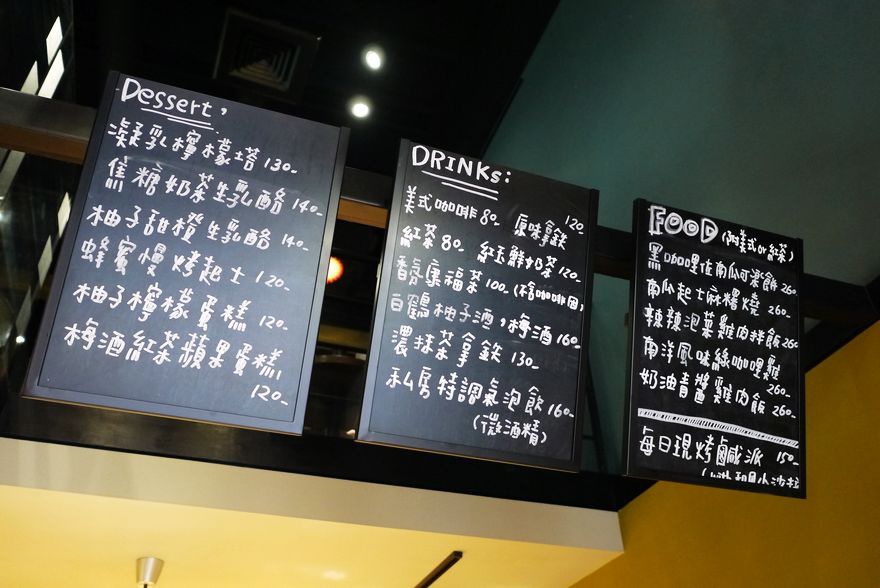 Dessert,
凝乳檸檬塔 130-
焦糖奶茶生乳酪 140-
柚子甜橙生乳酪 140-
蜂蜜慢烤起士 120-
柚子檸檬蛋糕 120-
梅酒紅茶蘋果蛋糕
120-
DRINKs:
美式咖啡 80- 原味拿鉄 120-
紅茶 80- 紅玉鮮奶茶 120-
康福茶 100- (不含咖啡因)
白鶴柚子酒,梅酒 160-
濃抹茶拿鉄 130-
私房特調氣泡飲 160-
(微酒精)
FOOD (附美式 or 紅茶)
黑咖哩佐南瓜可樂餅 260-
南瓜起士麻糬燒 260-
辣辣泡菜雞肉拌飯 260
南洋風味綠咖哩雞 260-
奶油青醬雞肉飯 260-
每日現烤鹹派 150-